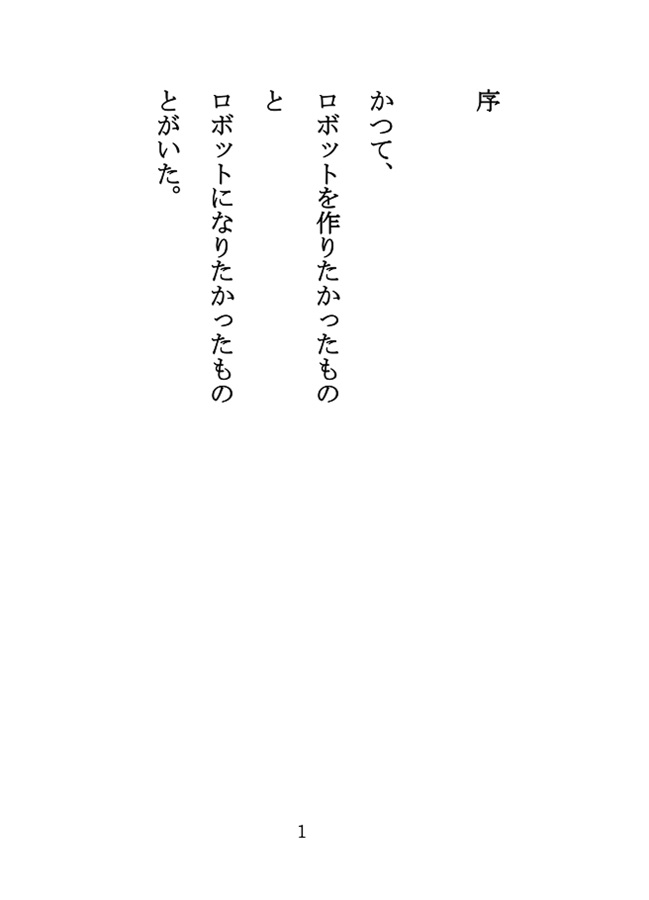 序
かつて、
ロボットを作りたかったもの
と
ロボットになりたかったもの
とがいた。
1